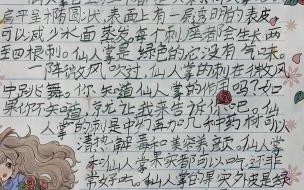 扁平呈椭圆状,表面上有一层透明的表皮
可以减少水面蒸发,每个刺座都会生长两
至四根刺。仙人掌是绿色的它没有气味。
一阵微风吹过,仙人掌的刺在微风
中跳舞。你知道仙人掌的作用吗?如
果你不知道,就让我来告诉你吧。仙人
掌的刺是中药再加几种药材可以
清热解毒和美容养颜。仙人掌
和仙人掌果实都可以吃,还非
常好吃。仙人掌的果实外皮是绿